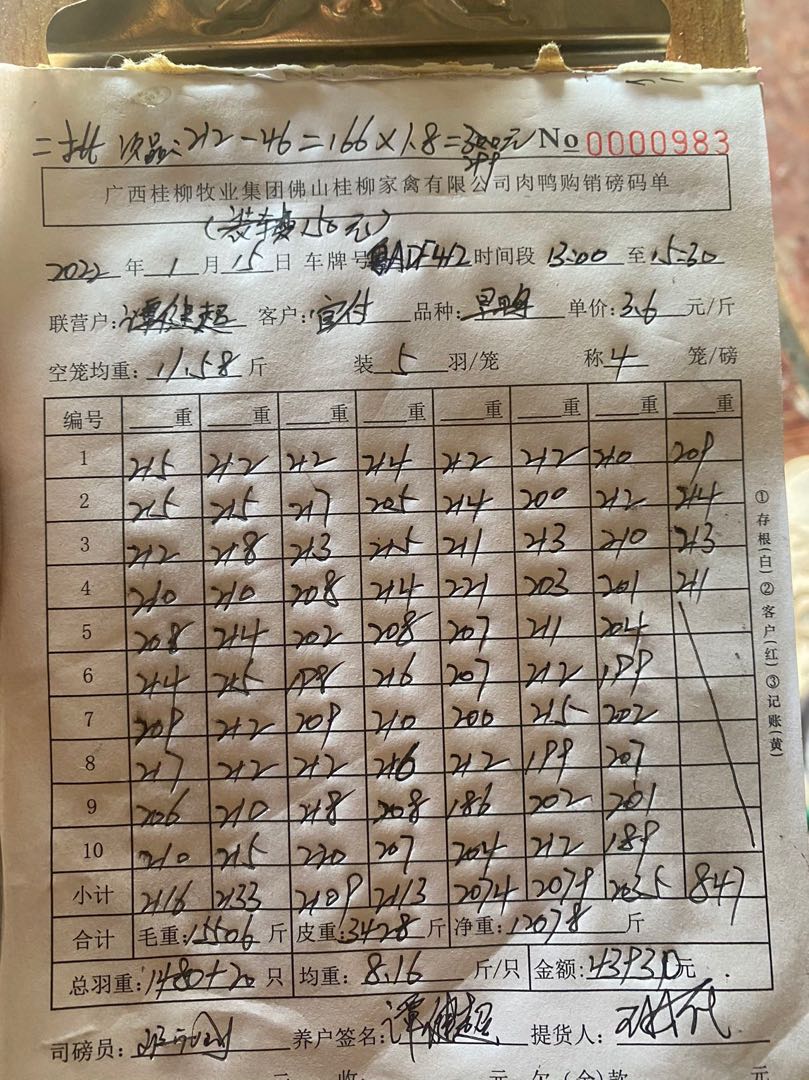 二批 次品:212-46=166×1.8=300元 No 0000983
299
广西桂柳牧业集团佛山桂柳家禽有限公司肉鸭购销磅码单
(装车费150元)
2022年1月15日 车牌号 ADF412 时间段 13:00 至 15:30
联营户:谭健超 客户: 品种: 单价:3.6 元/斤
空笼均重:11.58斤 装5羽/笼 称4笼/磅
编号 重 重 重 重 重 重 重 重
1 215 212 212 214 212 212 210 209
2 215 215 217 205 214 200 212 214
3 212 218 213 215 211 213 210 213
4 210 210 208 214 221 203 201 211
5 208 214 202 208 207 211 204
6 214 215 198 216 207 212 199
7 209 212 209 210 200 215 202
8 217 212 212 216 212 199 207
9 206 210 218 208 186 202 201
10 210 215 220 207 204 212 189
小计 2116 2133 2109 2113 2074 2079 2035 847
合计 毛重:15506斤 皮重:3428斤 净重:12078斤
总羽重:1480+20只 均重:8.16斤/只 金额:43930元
司磅员: 养户签名:谭健超 提货人:
元 收: 元 欠(余)款 元
①存根(白)②客户(红)③记账(黄)